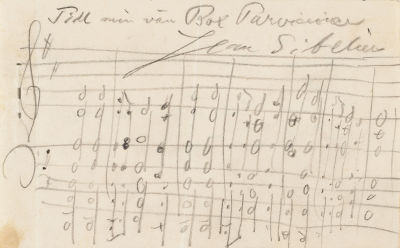 Till min vän Box Parviainen
Jean Sibelius